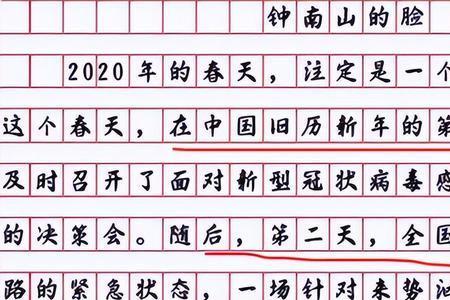 钟南山的脸
2020年的春天，注定是一个
这个春天，在中国旧历新年的第
及时召开了面对新型冠状病毒感
的决策会。随后，第二天，全国
路的紧急状态，一场针对来势汹